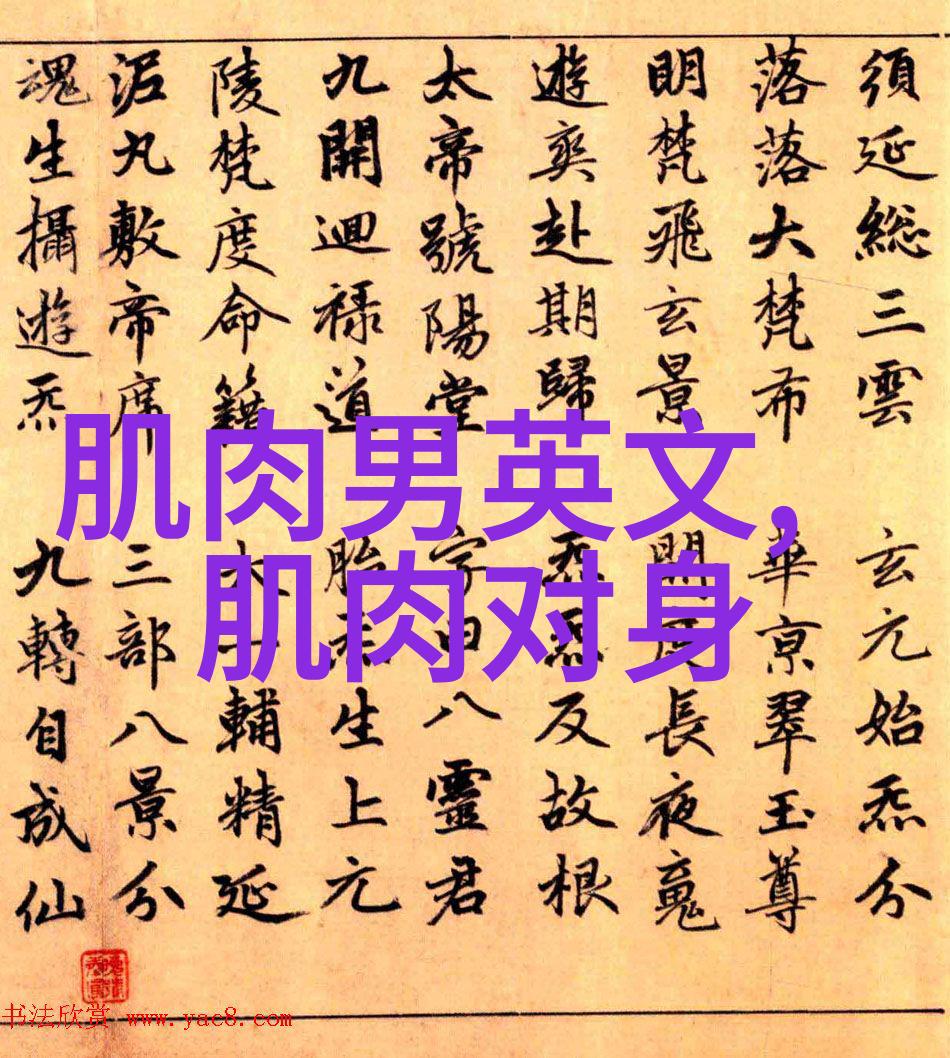 須延総三雲 玄元始炁分
落落大梵布 華京翠玉尊
明梵飛玄景 開度長夜魂
遊爽赴期歸 炁炁反故根
太帝號陽堂 字曰八靈君
九開迴禄道 胎炁生上元
陵梵度命籍 太一輔精延
泥丸敷帝席 三部八景分
魂生攝遊炁 九轉自成仙
肌肉男英文,
肌肉对身
书法欣赏 www.yac8.com